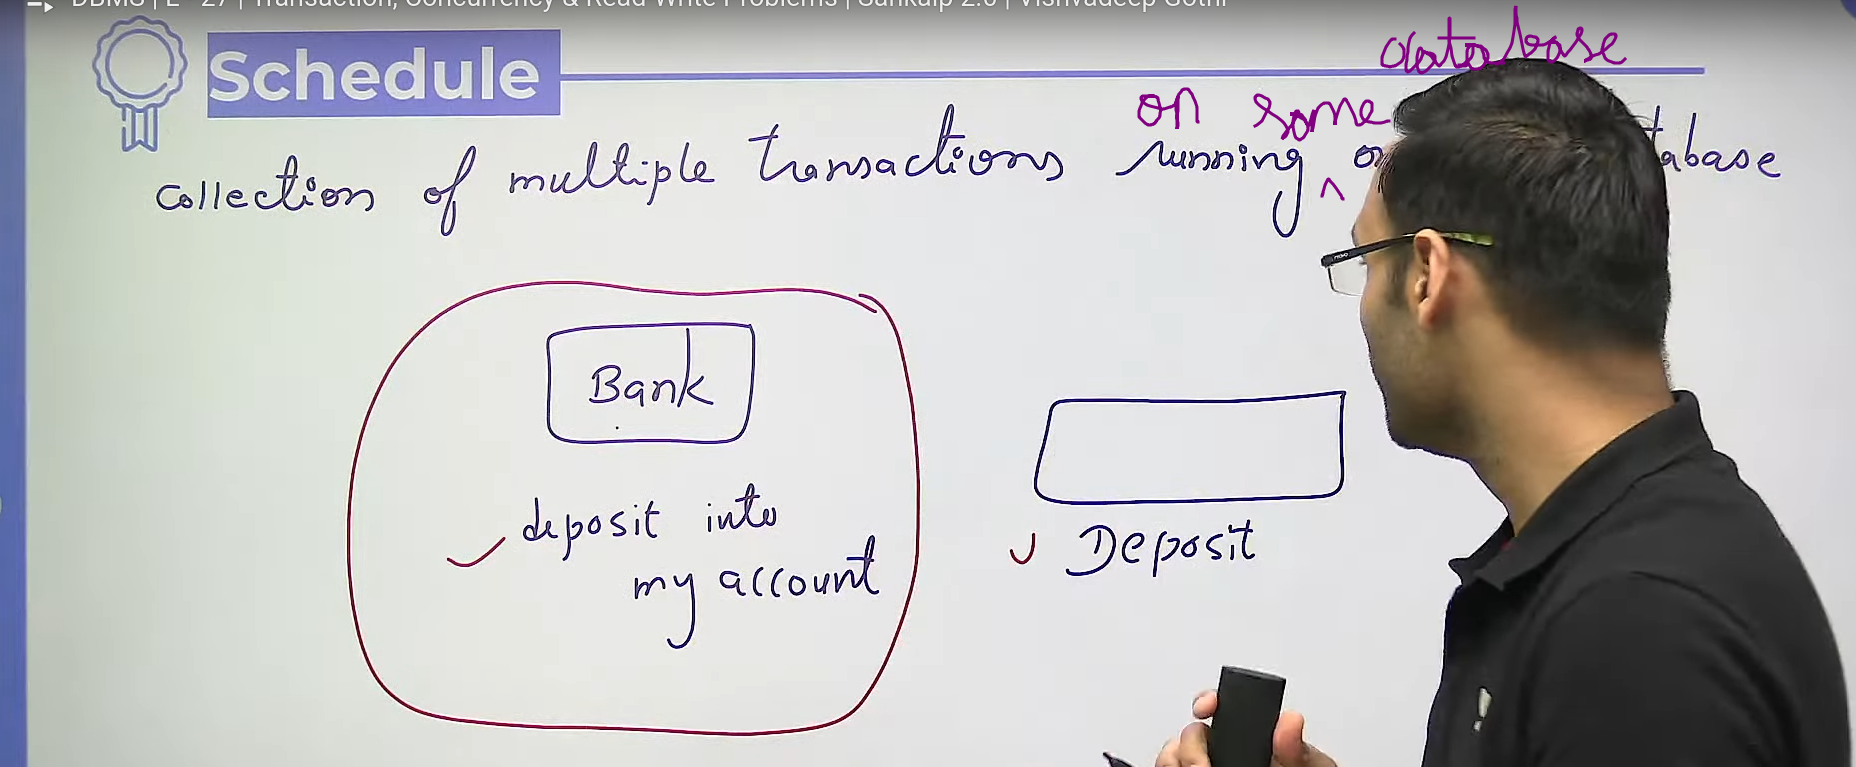 DBMS | L - 27 | Transaction, Concurrency & Read Write Problems | Sankalp 2.0 | Vishvadeep Gothi
Schedule
database
on some
collection of multiple transactions running
Bank
deposit into
my account
Deposit